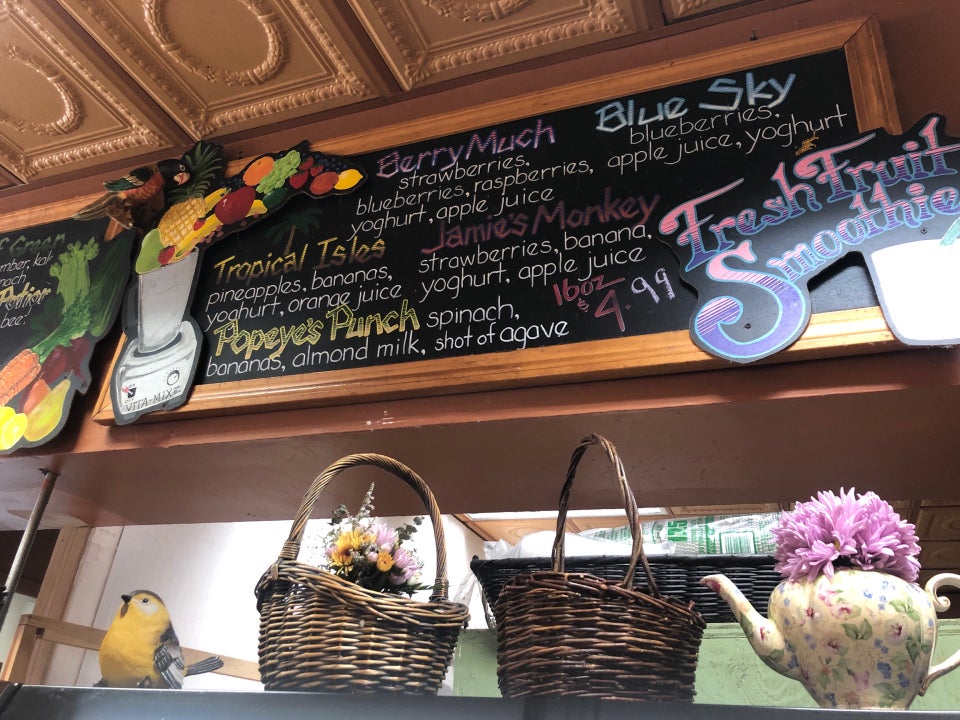 Berry Much
strawberries,
blueberries, raspberries,
yoghurt, apple juice
Blue Sky
blueberries,
apple juice, yoghurt
Tropical Isles
pineapples, bananas,
yoghurt, orange juice
Jamie's Monkey
strawberries, banana,
yoghurt, apple juice
Popeye's Punch spinach,
bananas, almond milk, shot of agave
16oz
$4.99
Fresh Fruit
Smoothie
VITA-MIX
Green